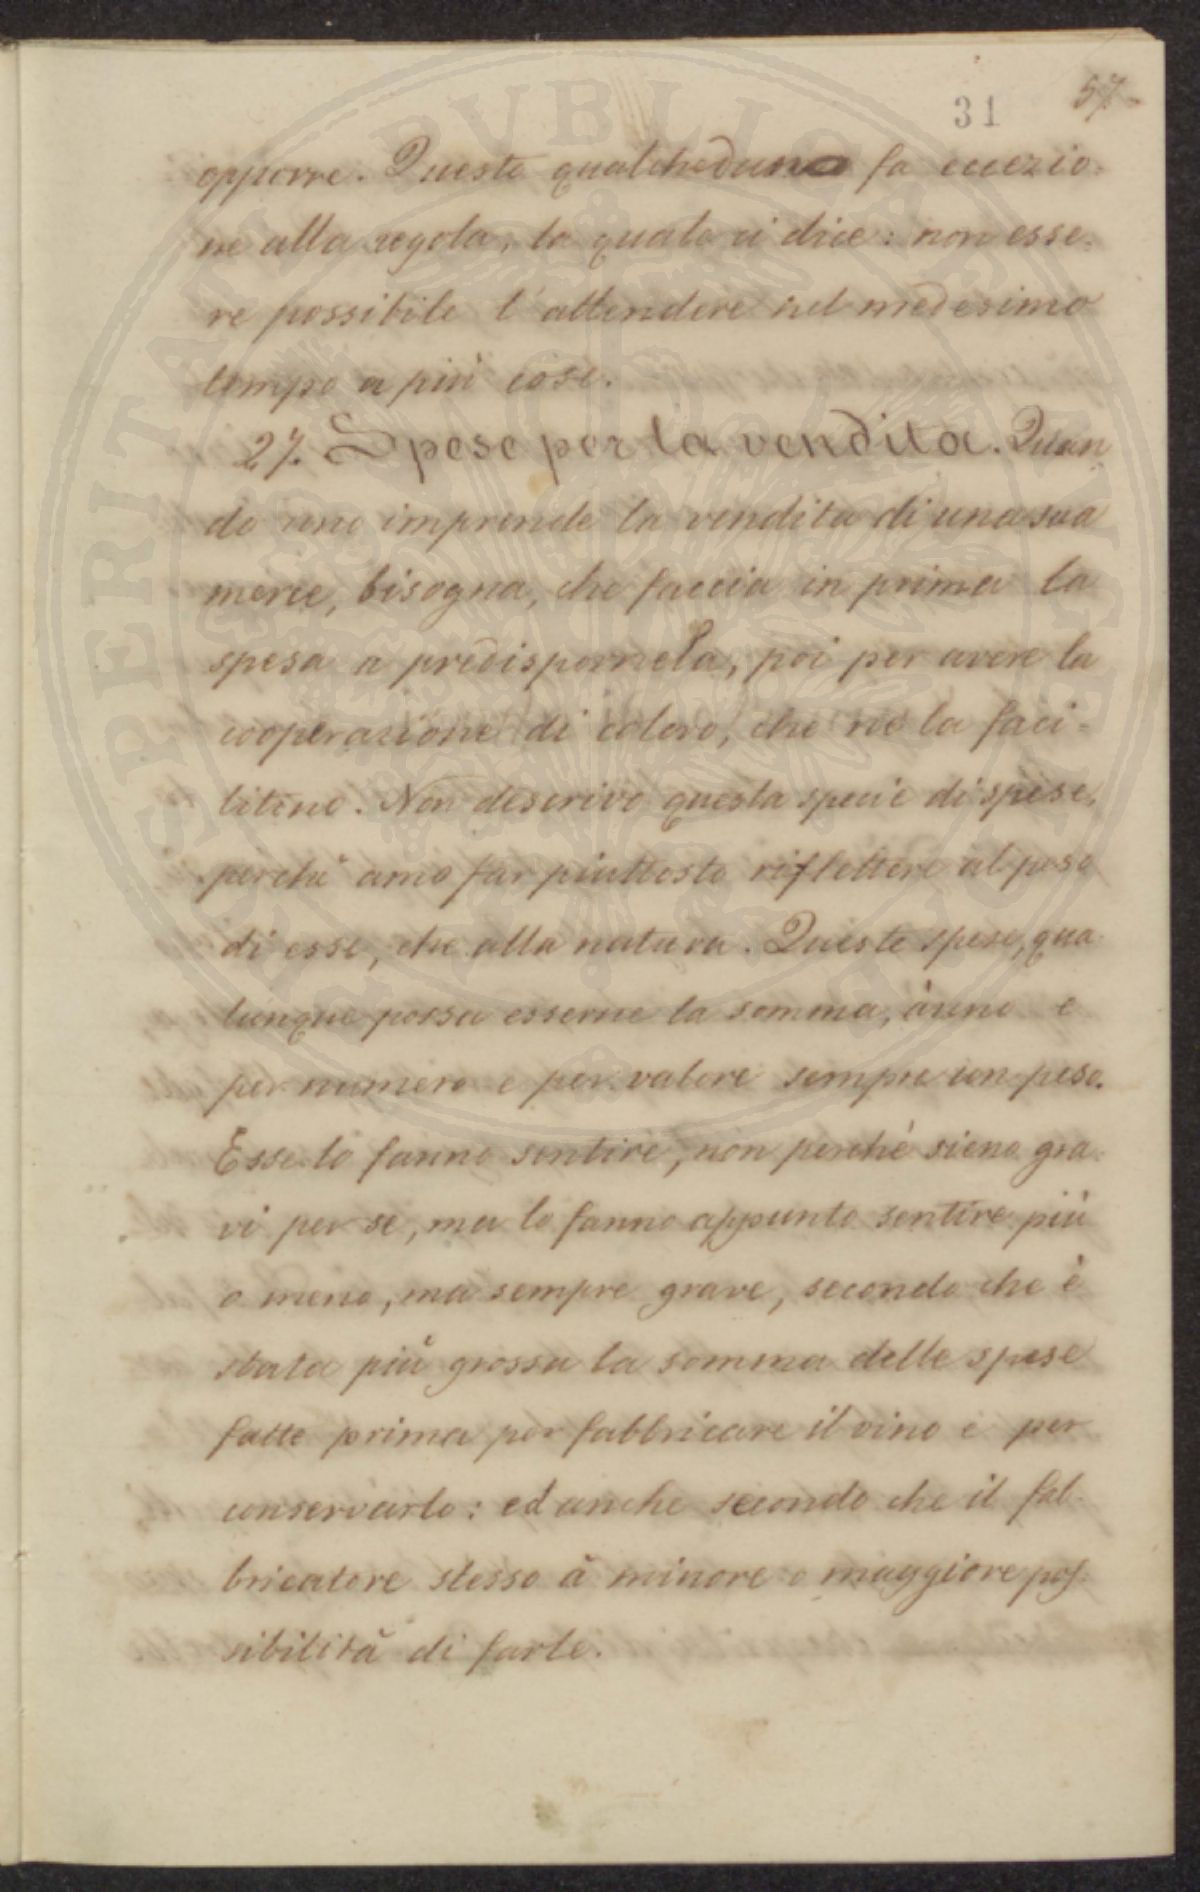 31 57
opporre. Questo qualcheduno fa eccezio-
ne alla regola, la quale ci dice: non esse-
re possibile l'attendere nel medesimo
tempo a più cose.
27. Spese per la vendita. Quan
do uno imprende la vendita di una sua
merce, bisogna, che faccia in prima la
spesa a predispornela, poi per avere la
cooperazione di coloro, che ne la faci-
litino. Non descrivo questa specie di spese,
perchè amo far piuttosto riflettere al peso
di esse, che alla natura. Queste spese, qua
lunque possa esserne la somma, ànno e
per numero e per valore sempre un peso.
Esse lo fanno sentire, non perchè sieno gra-
vi per se, ma lo fanno appunto sentire più
o meno, ma sempre grave, secondo che è
stata più grossa la somma delle spese
fatte prima per fabbricare il vino e per
conservarlo: ed anche secondo che il fab-
bricatore stesso à minore o maggiore pos-
sibilità di farle.
SPERITATI PVBLICAE